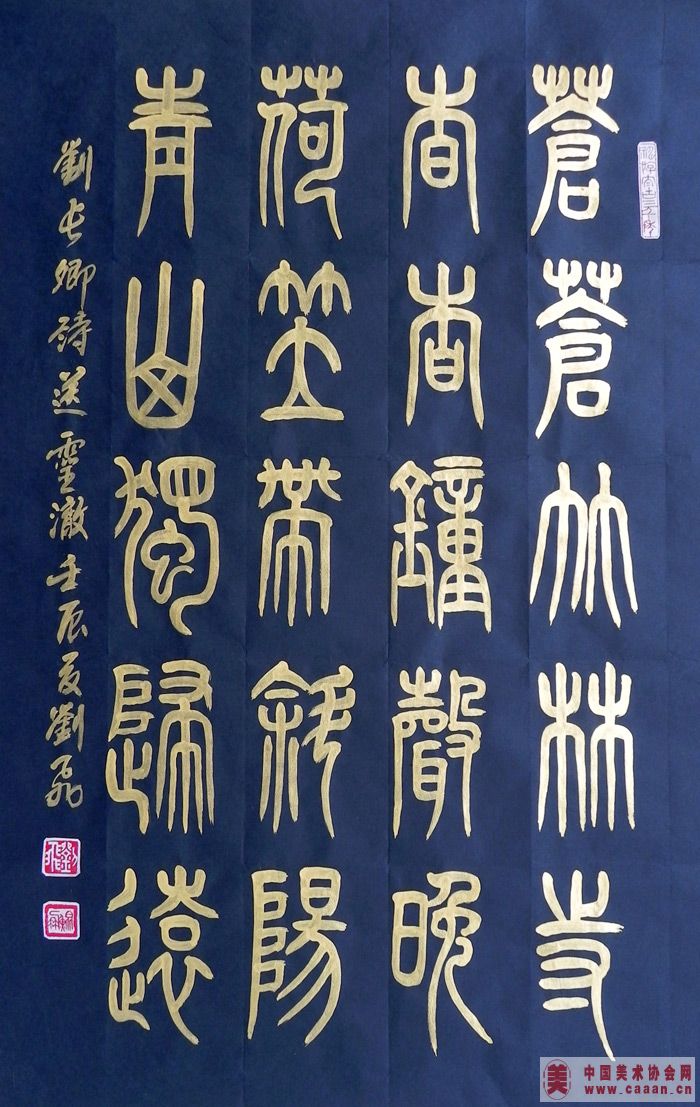 蒼蒼竹林寺
杳杳鐘聲晚
荷笠帶斜陽
青山獨歸遠
劉長卿詩送靈澈壬辰夏劉
美
中国美术协会网
www.caaan.cn